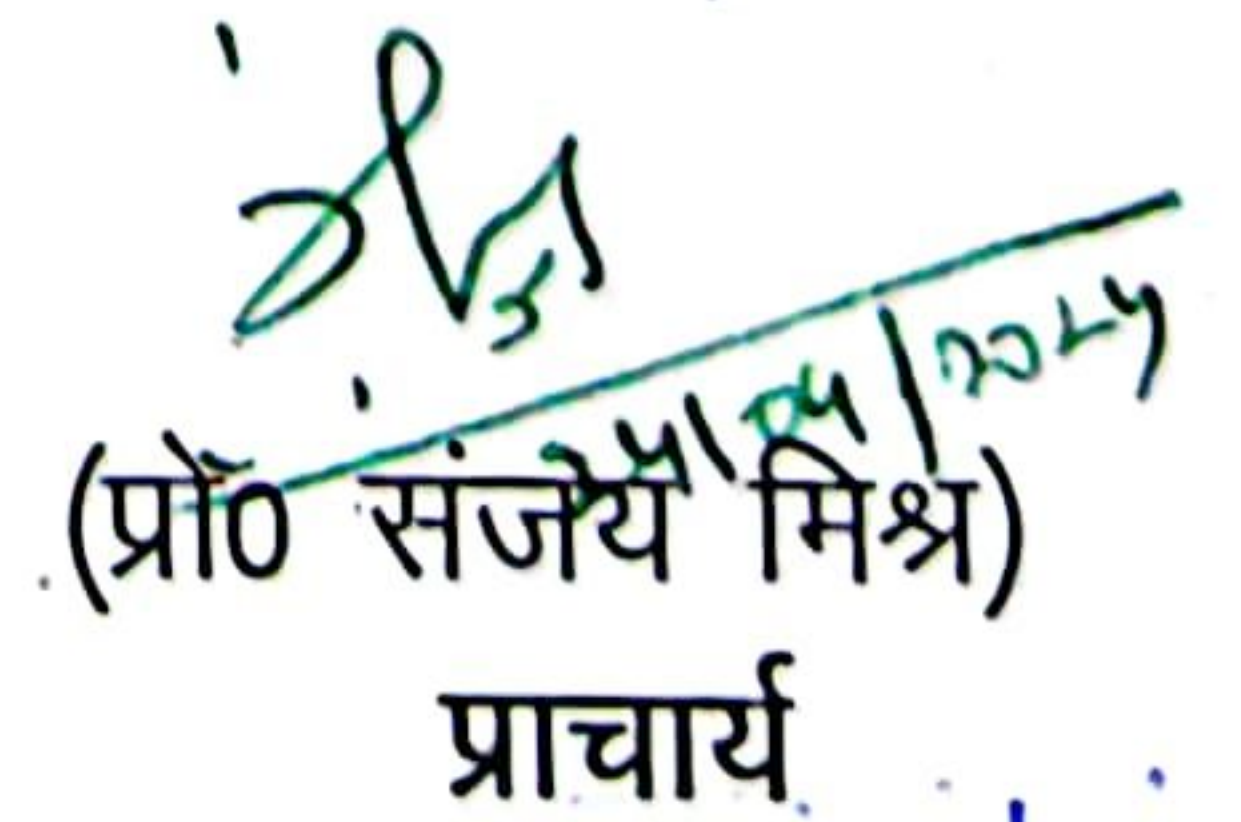 24/04/2024
(प्रो० संजय मिश्र)
प्राचार्य